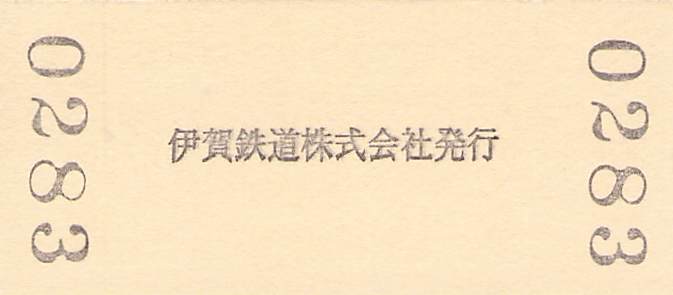 0283
伊賀鉄道株式会社発行
0283